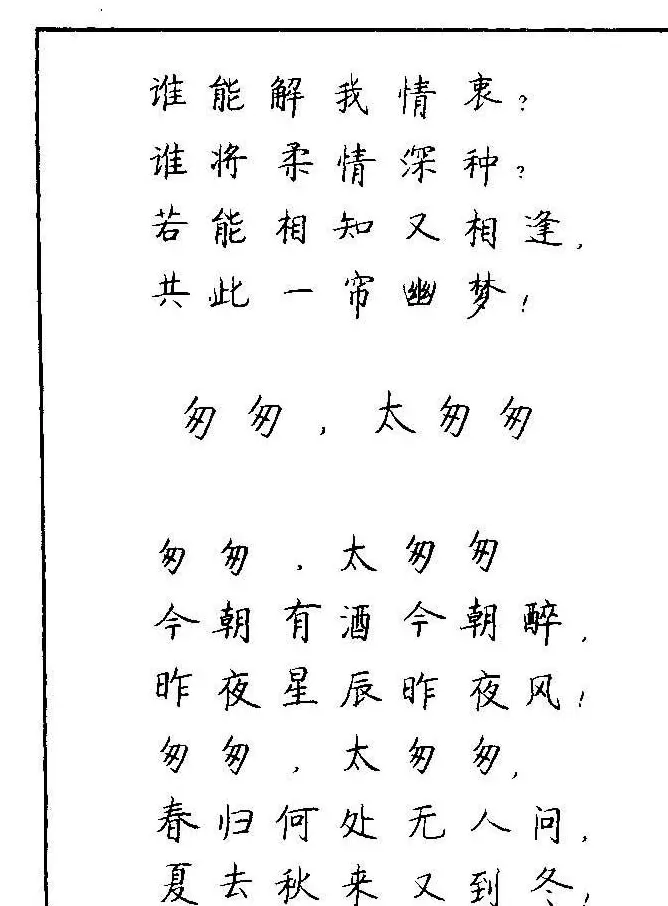 谁能解我情衷?
谁将柔情深种?
若能相知又相逢,
共此一帘幽梦!
匆匆,太匆匆
匆匆,太匆匆
今朝有酒今朝醉,
昨夜星辰昨夜风!
匆匆,太匆匆,
春归何处无人问,
夏去秋来又到冬!